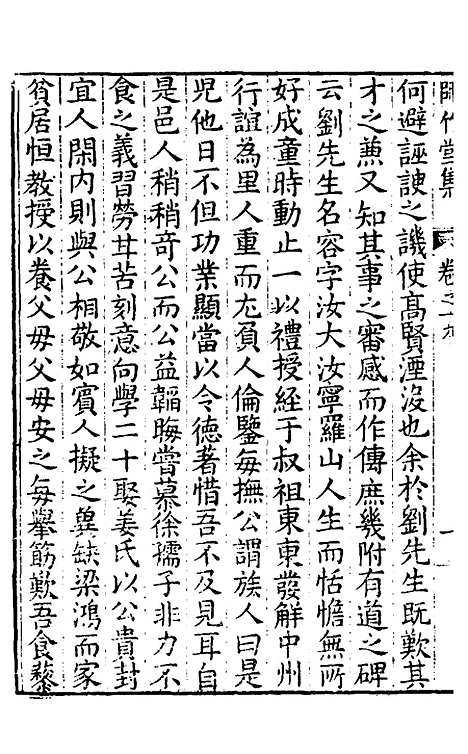 師竹堂集 卷之十九 一
何避誣諛之譏使高賢湮没也余於劉先生既歎其
才之蕉又知其事之審感而作傳庶幾附有道之碑
云劉先生名容字汝大汝寧羅山人生而恬憺無所
好成童時動止一以禮授経于叔祖東東發解中州
行誼為里人重而尤負人倫鑒每撫公謂族人曰是
児他日不但功業顯當以令德著惜吾不及見耳自
是邑人稍稍竒公而公益韜晦嘗慕徐孺子非力不
食之義習勞甘苦刻意向學二十娶姜氏以公貴封
宜人閑内則與公相敬如賓人擬之兾缺梁鴻而家
貧居恒教授以養父母父母安之每舉筯歎吾食藜